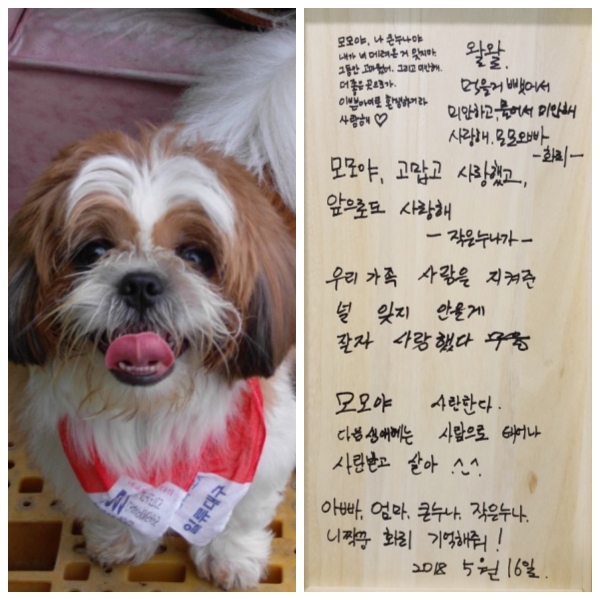 모모야, 나 큰누나야
내가 너 데려온 거 잊지마.
그동안 고마웠어. 그리고 미안해.
더 좋은 곳으로가.
이쁜아이로 환생하거라
사랑해 ♡
왈왈.
먹을거 뺏어서
미안하고, 물어서 미안해
사랑해. 모모오빠
-화리-
모모야, 고맙고 사랑했고,
앞으로도 사랑해
- 작은누나가 -
우리 가족 사랑을 지켜준
널 잊지 않을게
잘자 사랑했다
모모야 사란한다.
다음생애에는 사람으로 태어나
사랑받고 살아 ^.^
아빠, 엄마, 큰누나, 작은누나,
니짝꿍 화리 기억해줘!
2018 5월 16일.
일류대구